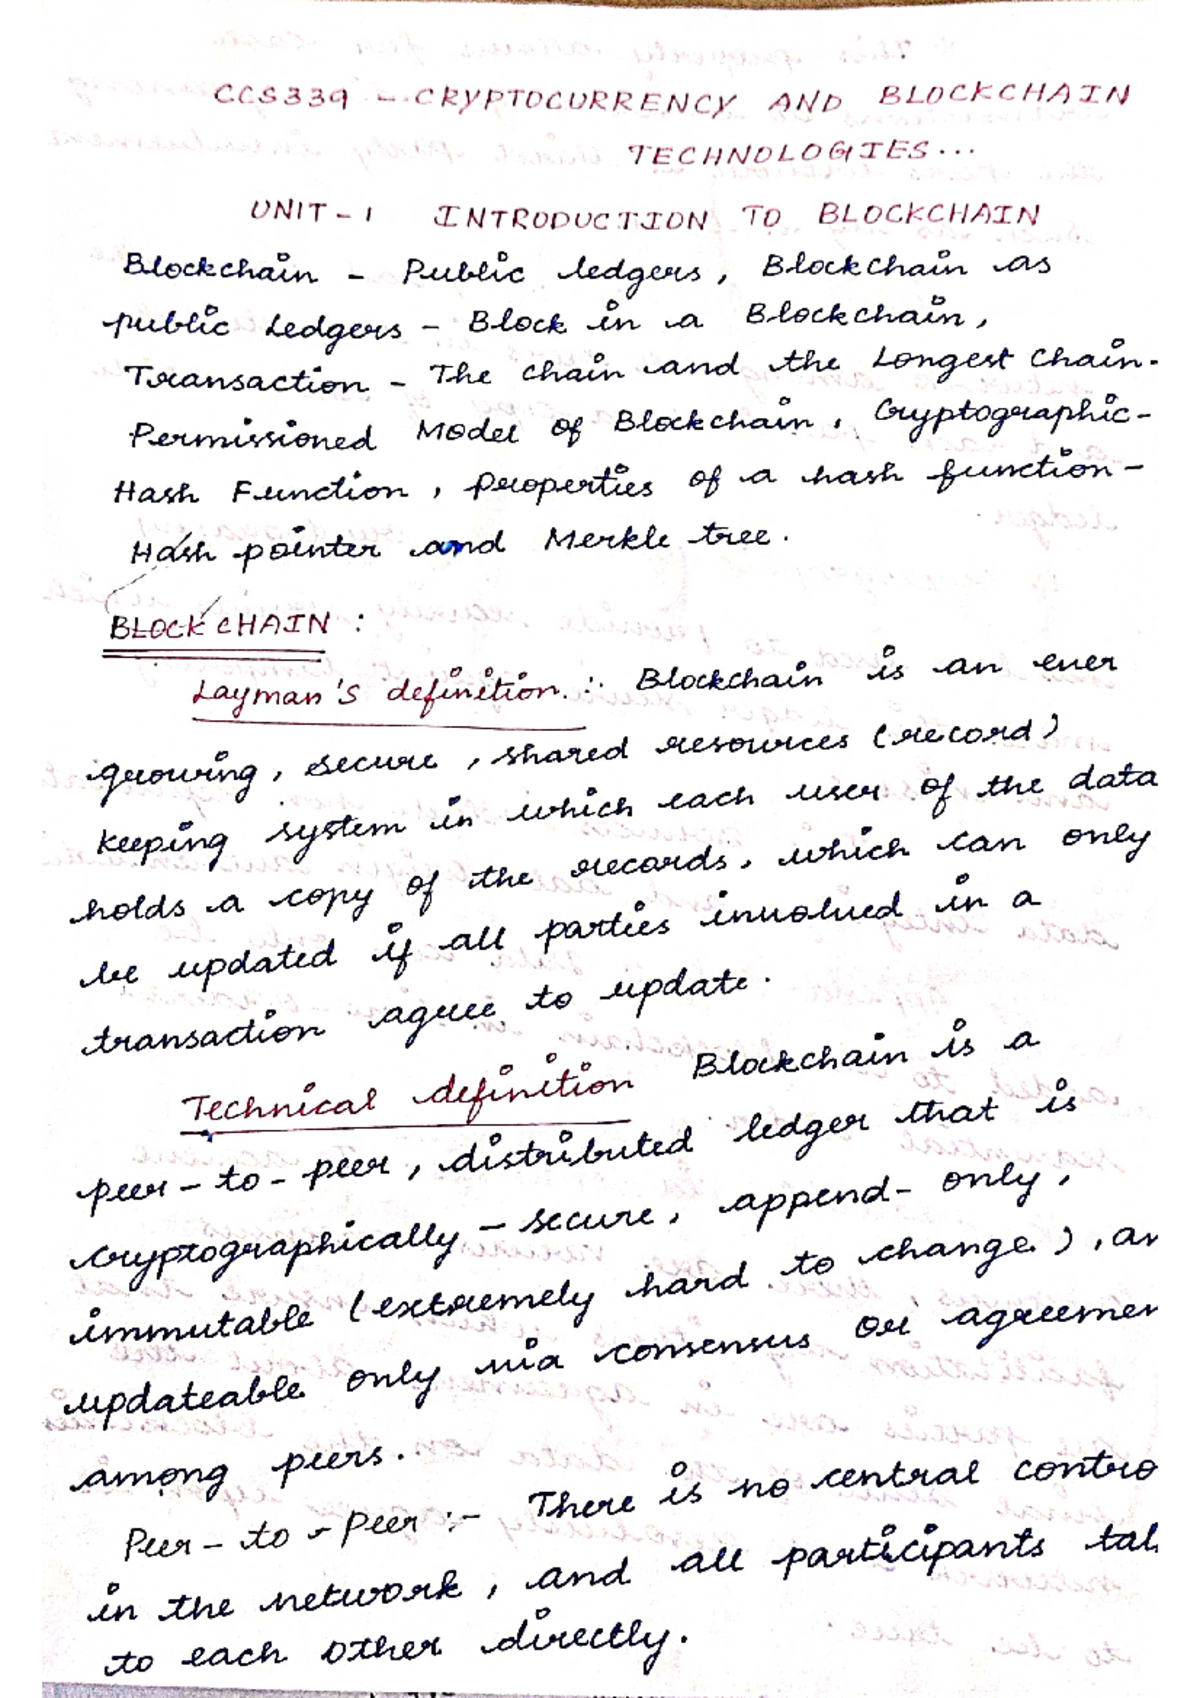 CCS339 - CRYPTOCURRENCY AND BLOCKCHAIN
TECHNOLOGIES...
UNIT - 1 INTRODUCTION TO BLOCKCHAIN
Blockchain - Public ledgers, Blockchain as
public Ledgers - Block in a Blockchain,
Transaction - The chain and the Longest chain-
Permissioned Model of Blockchain, Cryptographic-
Hash Function, Properties of a hash function-
Hash pointer and Merkle tree.
BLOCKCHAIN :
Layman's definition :- Blockchain is an ever
growing, secure, shared resources (record)
keeping system in which each user of the data
holds a copy of the records, which can only
be updated if all parties involved in a
transaction agree to update.
Technical definition Blockchain is a
peer-to-peer, distributed ledger that is
cryptographically - secure, append-only,
immutable (extremely hard to change), an
updateable only via consensus or agreemen
among peers.
Peer-to-Peer :- There is no central contro
in the network, and all participants tal
to each other directly.